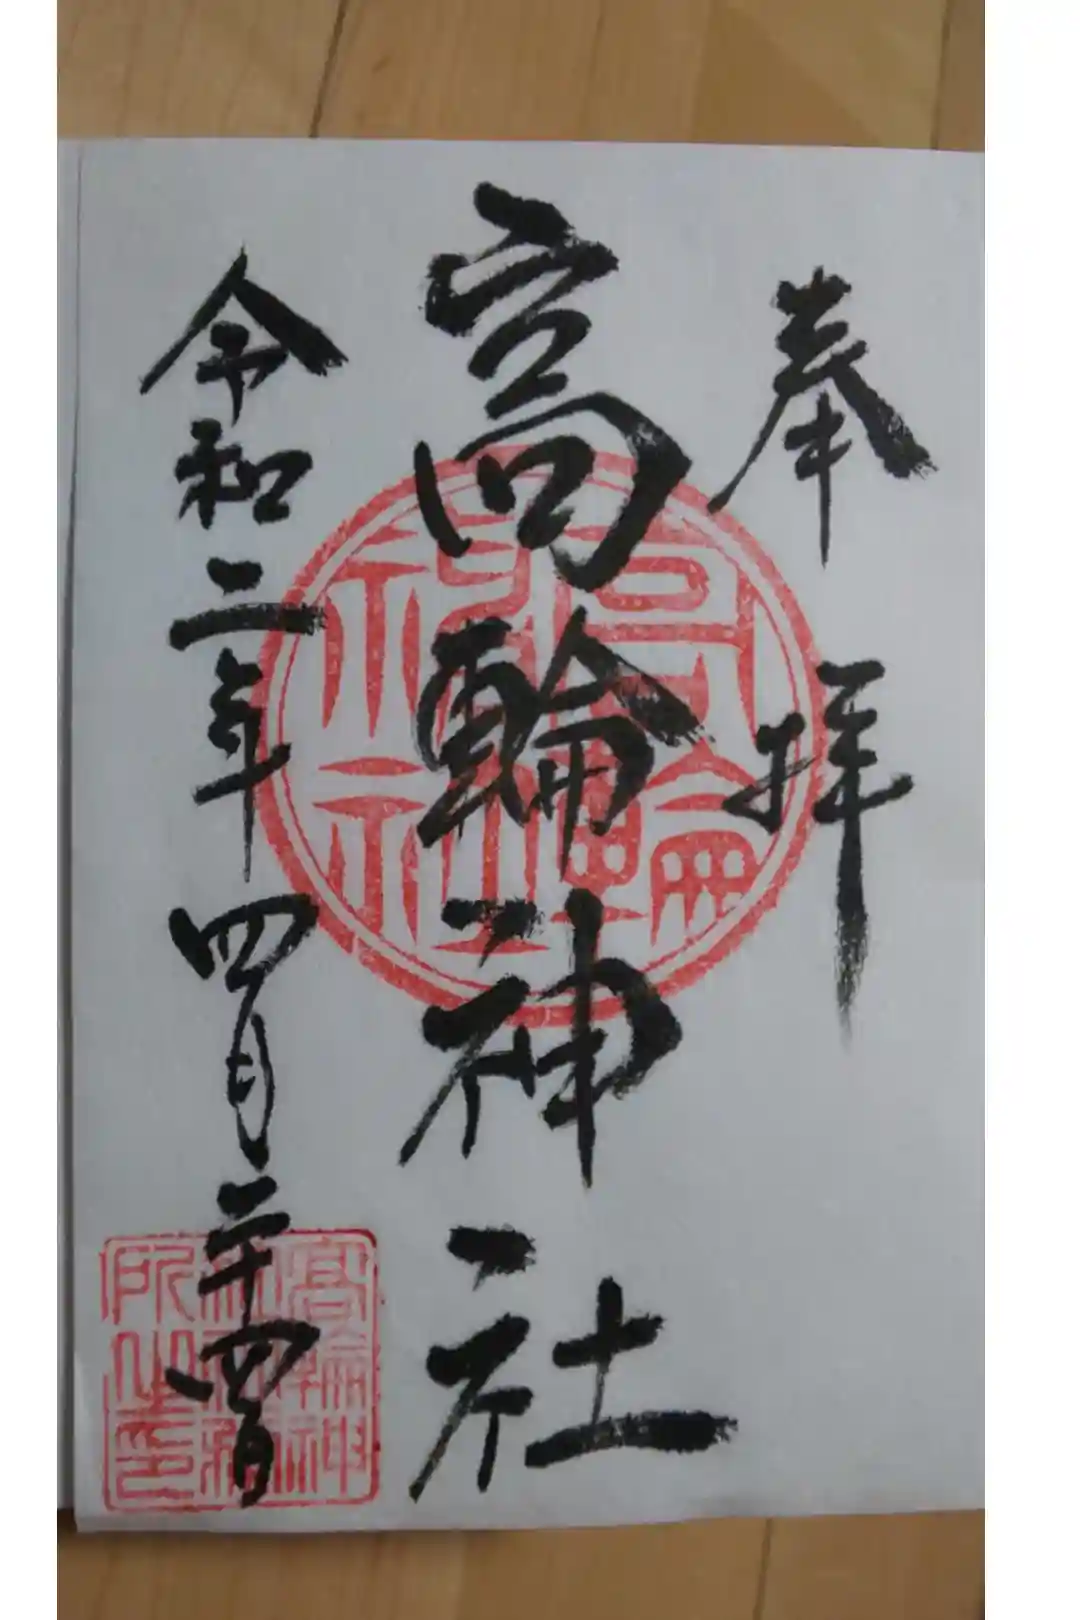 奉拝
高輪神社
令和二年四月二十四日
高輪神社
高輪神社社務所之印